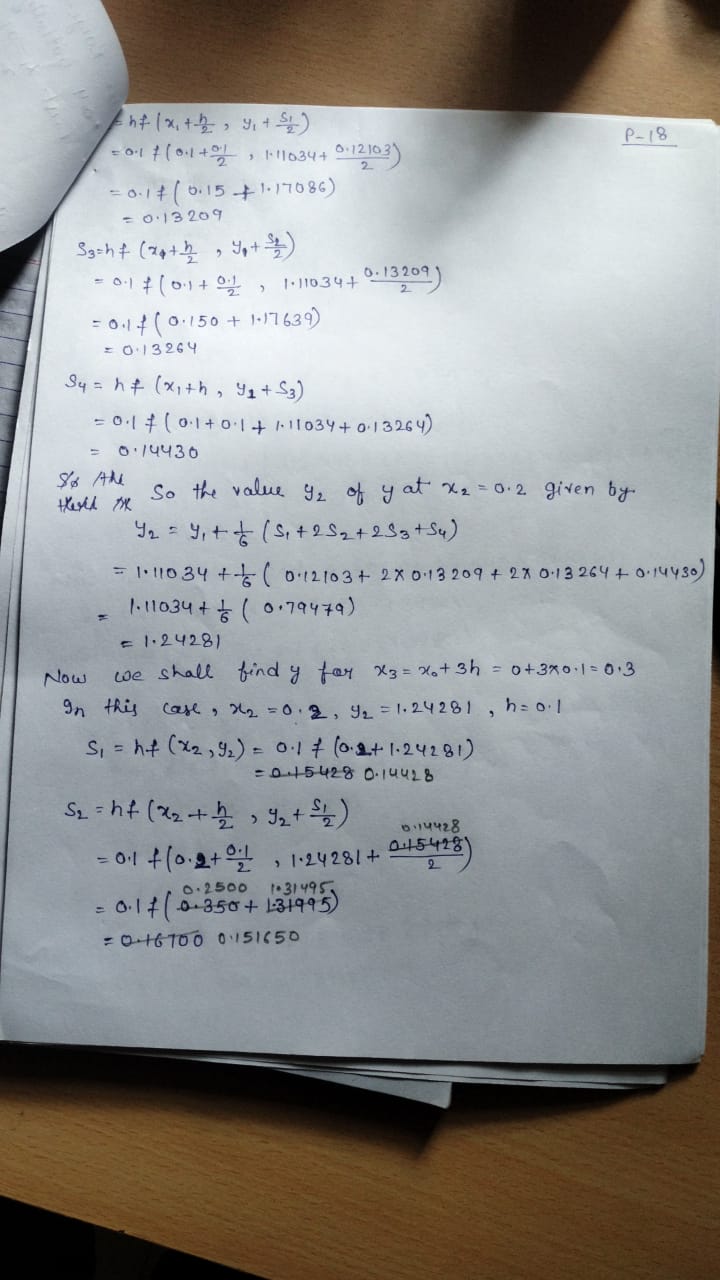 P-18
= hf (x₁ + h/2 , y₁ + S₁/2)
= 0.1 f (0.1 + 0.1/2 , 1.11034 + 0.12103/2)
= 0.1 f (0.15 + 1.17086)
= 0.13209
S₃ = hf (x₁ + h/2 , y₁ + S₂/2)
= 0.1 f (0.1 + 0.1/2 , 1.11034 + 0.13209/2)
= 0.1 f (0.150 + 1.17639)
= 0.13264
S₄ = hf (x₁ + h , y₁ + S₃)
= 0.1 f (0.1 + 0.1 + 1.11034 + 0.13264)
= 0.14430
So the value y₂ of y at x₂ = 0.2 given by
y₂ = y₁ + 1/6 (S₁ + 2S₂ + 2S₃ + S₄)
= 1.11034 + 1/6 (0.12103 + 2 x 0.13209 + 2 x 0.13264 + 0.14430)
= 1.11034 + 1/6 (0.79479)
= 1.24281
Now we shall find y for x₃ = x₀ + 3h = 0 + 3x0.1 = 0.3
In this case, x₂ = 0.2, y₂ = 1.24281, h = 0.1
S₁ = hf (x₂, y₂) = 0.1 f (0.2 + 1.24281)
= 0.15428 0.14428
S₂ = hf (x₂ + h/2 , y₂ + S₁/2)
0.14428
= 0.1 f (0.2 + 0.1/2 , 1.24281 + 0.15428/2)
0.2500 1.31495
= 0.1 f (0.350 + 1.31995)
= 0.16700 0.151650